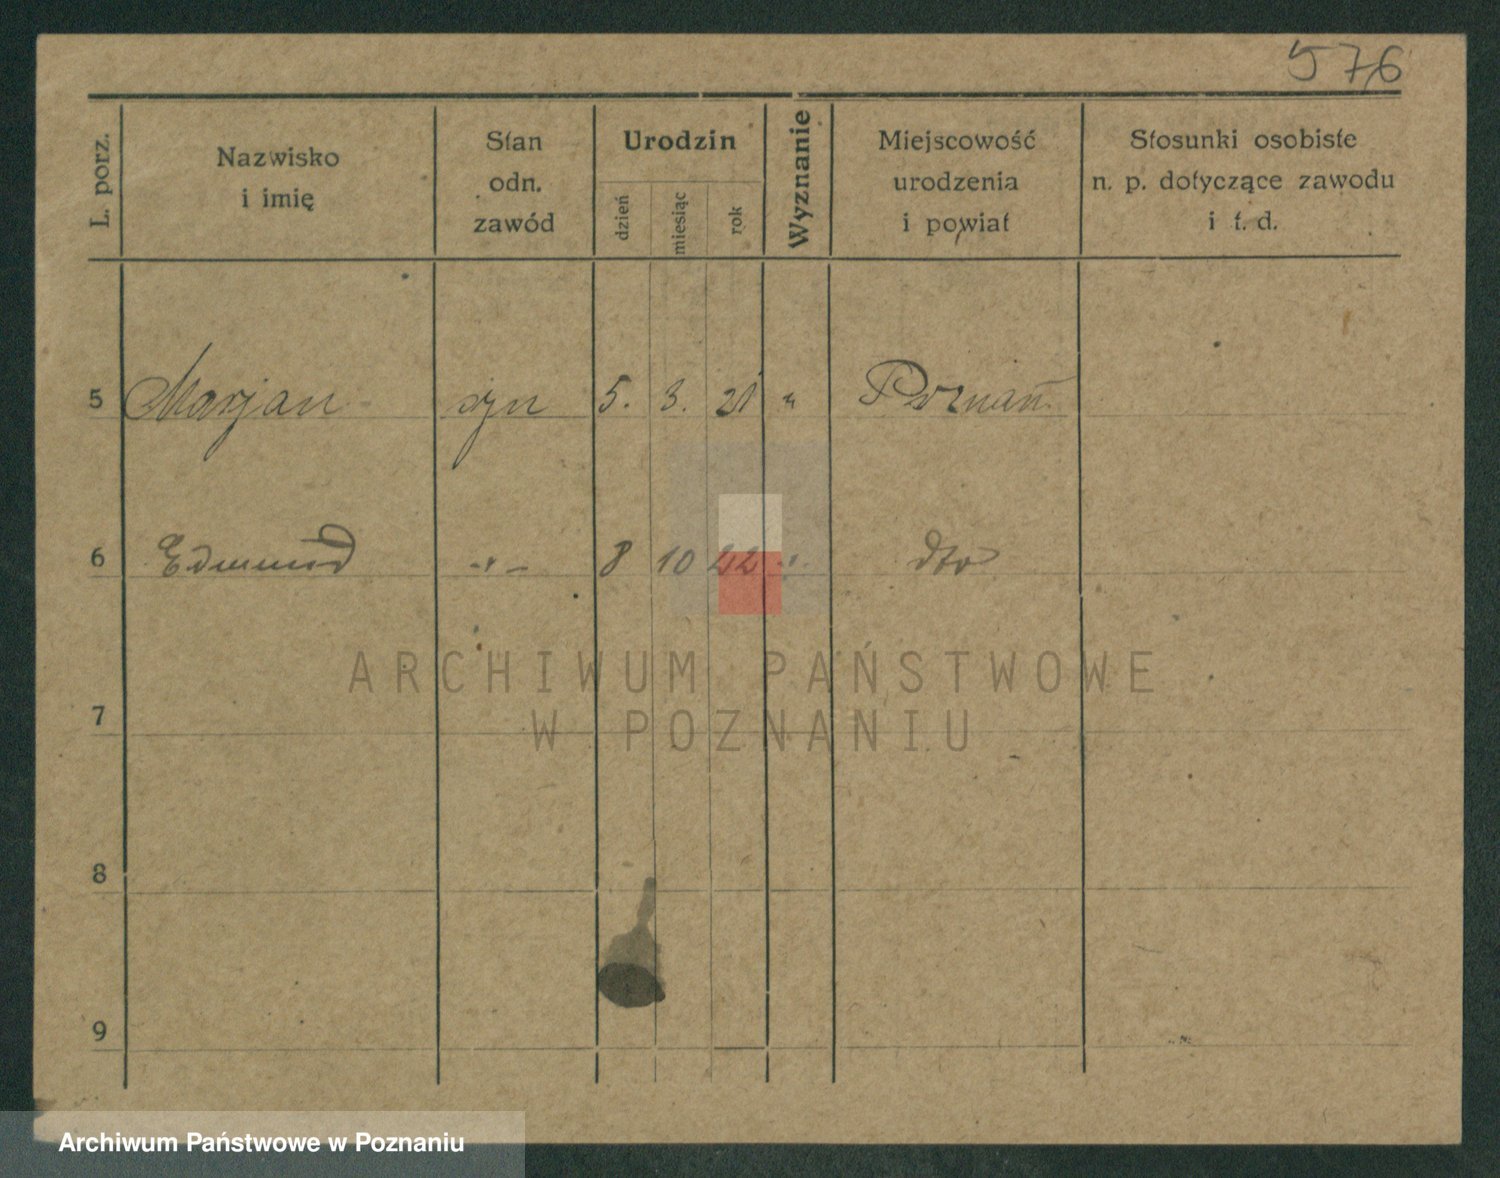 576
L. porz.
Nazwisko
i imię
Stan
odn.
zawód
Urodzin
dzień
miesiąc
rok
Wyznanie
Miejscowość
urodzenia
i powiat
Stosunki osobiste
n. p. dotyczące zawodu
i t. d.
5 Marjan syn 5. 3. 21 " Poznań
6 Edmund -"- 8 10 22 " dto
ARCHIWUM PAŃSTWOWE
W POZNANIU
7
8
9
Archiwum Państwowe w Poznaniu